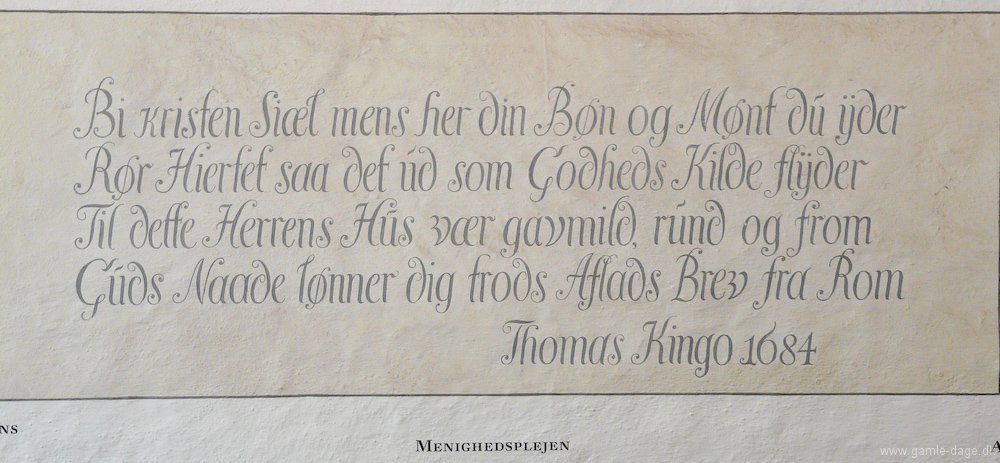 Bi kristen Siæl mens her din Bøn og Mønt dú ÿder
Rør Hiertet saa det úd som Godheds Kilde flÿder
Til dette Herrens Hús vær gavmild, rúnd og from
Gúds Naade lønner dig trods Aflads Brev fra Rom
Thomas Kingo 1684
NS
MENIGHEDSPLEJEN
A
www.gamle-dage.dk